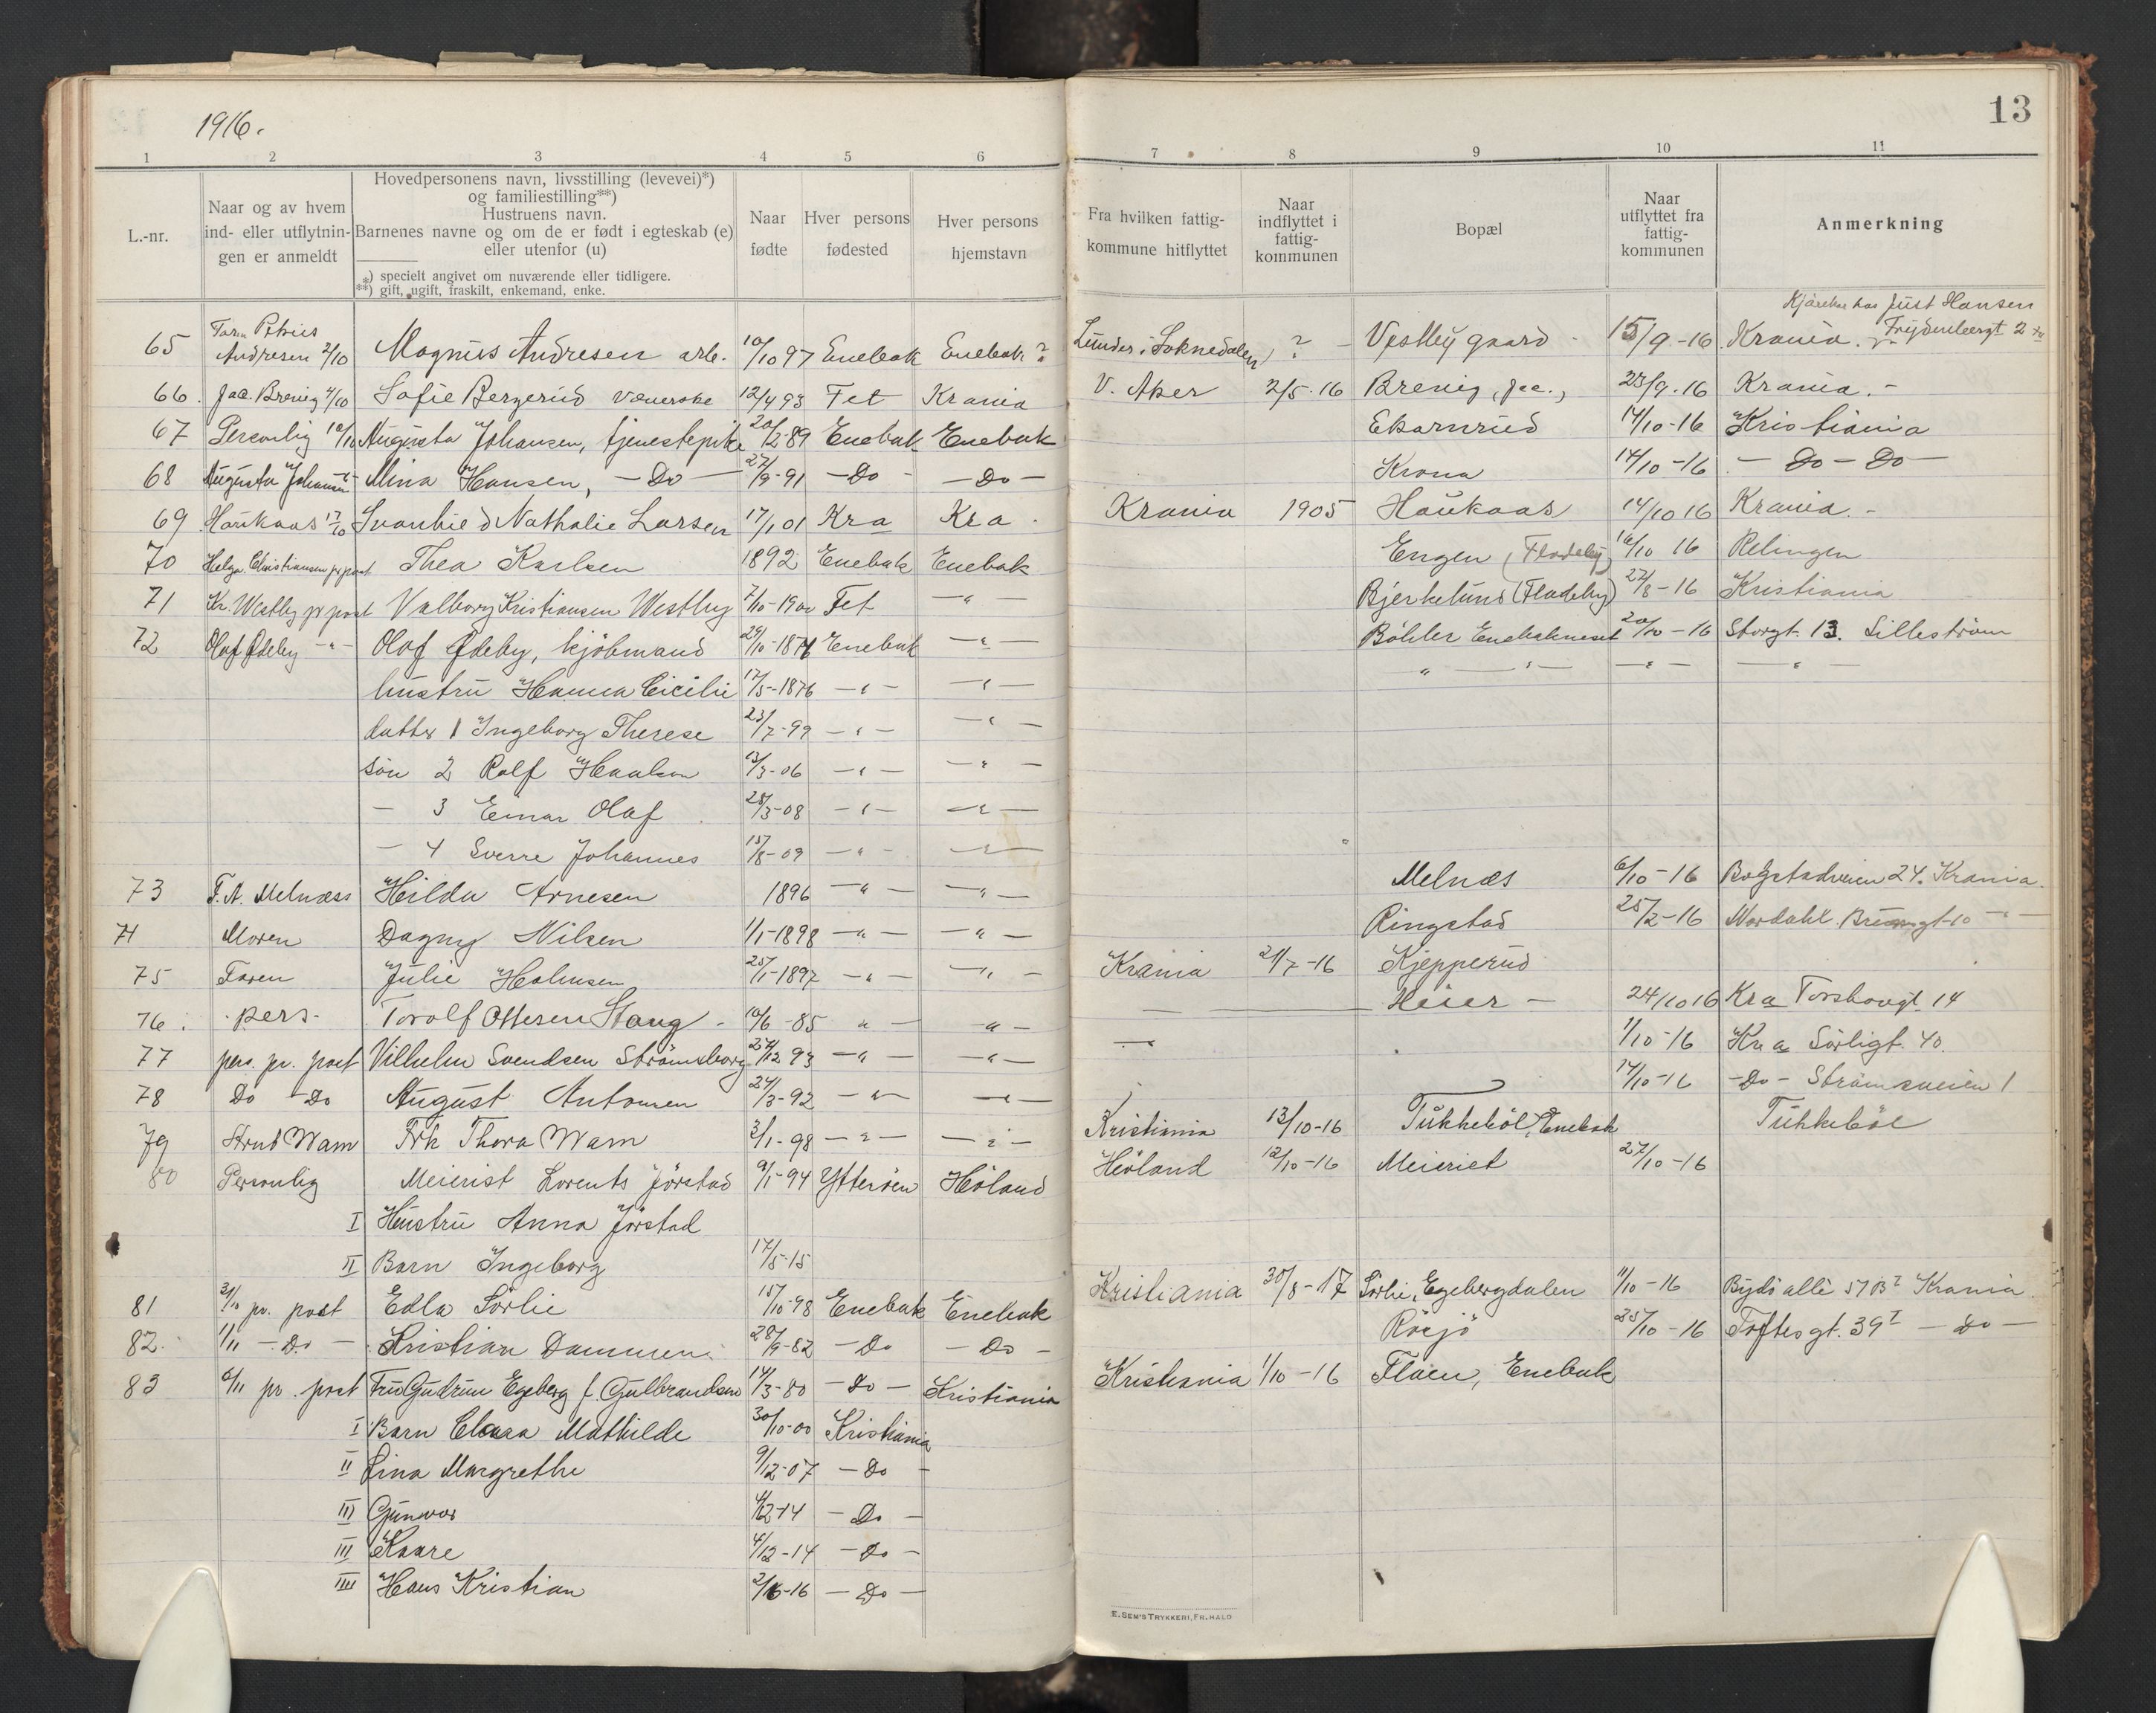 1916.
13
1 2 3 4 5 6 7 8 9 10 11
L.-nr.
Naar og av hvem ind- eller utflytningen er anmeldt
Hovedpersonens navn, livsstilling (levevei)*)
og familiestilling**)
Hustruens navn.
Barnenes navne og om de er født i egteskab (e)
eller utenfor (u)
*) specielt angivet om nuværende eller tidligere.
**) gift, ugift, fraskilt, enkemand, enke.
Naar fødte
Hver persons fødested
Hver persons hjemstavn
Fra hvilken fattigkommune hitflyttet
Naar indflyttet i fattigkommunen
Bopæl
Naar utflyttet fra fattigkommunen
Anmerkning
hos Just Hansen
65 Andresen 2/10 Magnus Andresen arb. 10/10 97 Enebak Enebak? Lunder i Soknedalen ? Vestby gaard 15/9-16 Krania. 2
66. Jac. Brevig 4/10 Sofie Bergerud væverske 12/4 93 Fet Krania V. Aker 2/5-16 Brevig, Jac., 23/9.16 Krania.-
67 Personlig 10/10 Augusta Johansen, tjenestepike 20/12-89 Enebak Enebak Ekornrud 14/10-16 Kristiania
68 Augusta Johansen Mina Hansen, -Do- 27/9-91 -Do- -Do- Krona 14/10-16 -Do-Do-
69 Haukaas 17/10 Svanhild Nathalie Larsen 17/1 01 Kra Kra. Krania 1905 Haukaas 14/10 16 Krania.-
70 Helga Christiansen pr post Thea Karlsen 1892 Enebak Enebak Engen (Fladeby) 16/10 16 Relingen
71 Kr. Westby pr post Valborg Kristiansen Westby 7/10-1900 Fet -"- Bjerkelund (Fladeby) 22/8-16 Kristiania
72 Olaf Ødeby -"- Olaf Ødeby, kjöbmand 29/10-1874 Enebak -"- Böhler Enebakneset 20/10-16 Storgt. 13. Lilleström
hustru Hanna Cicilie 17/5-1876 -"- -"- " -"- -"- -"-
datter 1 Ingeborg Therese 23/7-99 -"- -"-
sön 2 Rolf Haakon 12/3-06 -"- -"-
- 3 Einar Olaf 28/3-08 -"- -"-
- 4 Sverre Johannes 15/8-09 -"- -"-
73 F.A. Melnæss Hilda Arnesen 1896 -"- -"- Melnæs 6/10-16 Bogstadveien 24. Krania.
74 Moren Dagny Nilsen 1/1-1898 -"- -"- Ringstad 25/2-16 Nordahl Brunsgt-10 -"-
75 Faren Julie Holmsen 25/1-1897 -"- -"- Krania 21/7-16 Kjepperud
76. pers. Torolf Ottesen Stang 10/6-85 " -"- Heier - 24/10 16 Kra Torshovgt. 14
77 pers. pr. post Vilhelm Svendsen Strömsborg 27/12 93 -"- -"- -"- 1/10-16 Kra Sörligt. 40.
78 Do -Do August Antonsen 24/3-92 -"- -"- 14/10-16 -Do- Strömsveien 1
79 Arnt Wam Frk Thora Wam 3/1-98 -"- -"- Kristiania 13/10-16 Tukkeböl, Enebak Tukkeböl
80 Personlig Meierist Lorents Jörstad 9/1-94 Ytteröen Höland Höland 12/10-16 Meieriet 27/10-16
I Hustru Anna Jörstad
II Barn Ingeborg 17/5-15
81 31/10 pr. post Edla Sörlie 15/10-98 Enebak Enebak Kristiania 30/8-17 Sörlie, Egebergdalen 11/10-16 Bygdö alle 57 B I Krania.
82. 1/11 -Do- Kristian Dammen 28/9-82 -Do -Do- Röisjö 25/10-16 Toftesgt. 39 I -Do-
83 6/11 pr. post Fru Gudrun Egeberg f. Gulbrandsen 14/3-80 -Do- Kristiania Kristiania 1/10-16 Flaen, Enebak
I Barn Clara Mathilde 30/10-00 Kristiania
II Lina Margrethe 9/12-07 -Do-
III Gunvor 4/12-14 -Do-
III Kaare 4/12-14 -Do-
IIII Hans Kristian 2/6-16 -Do-
E. SEM'S TRYKKERI, FR.HALD